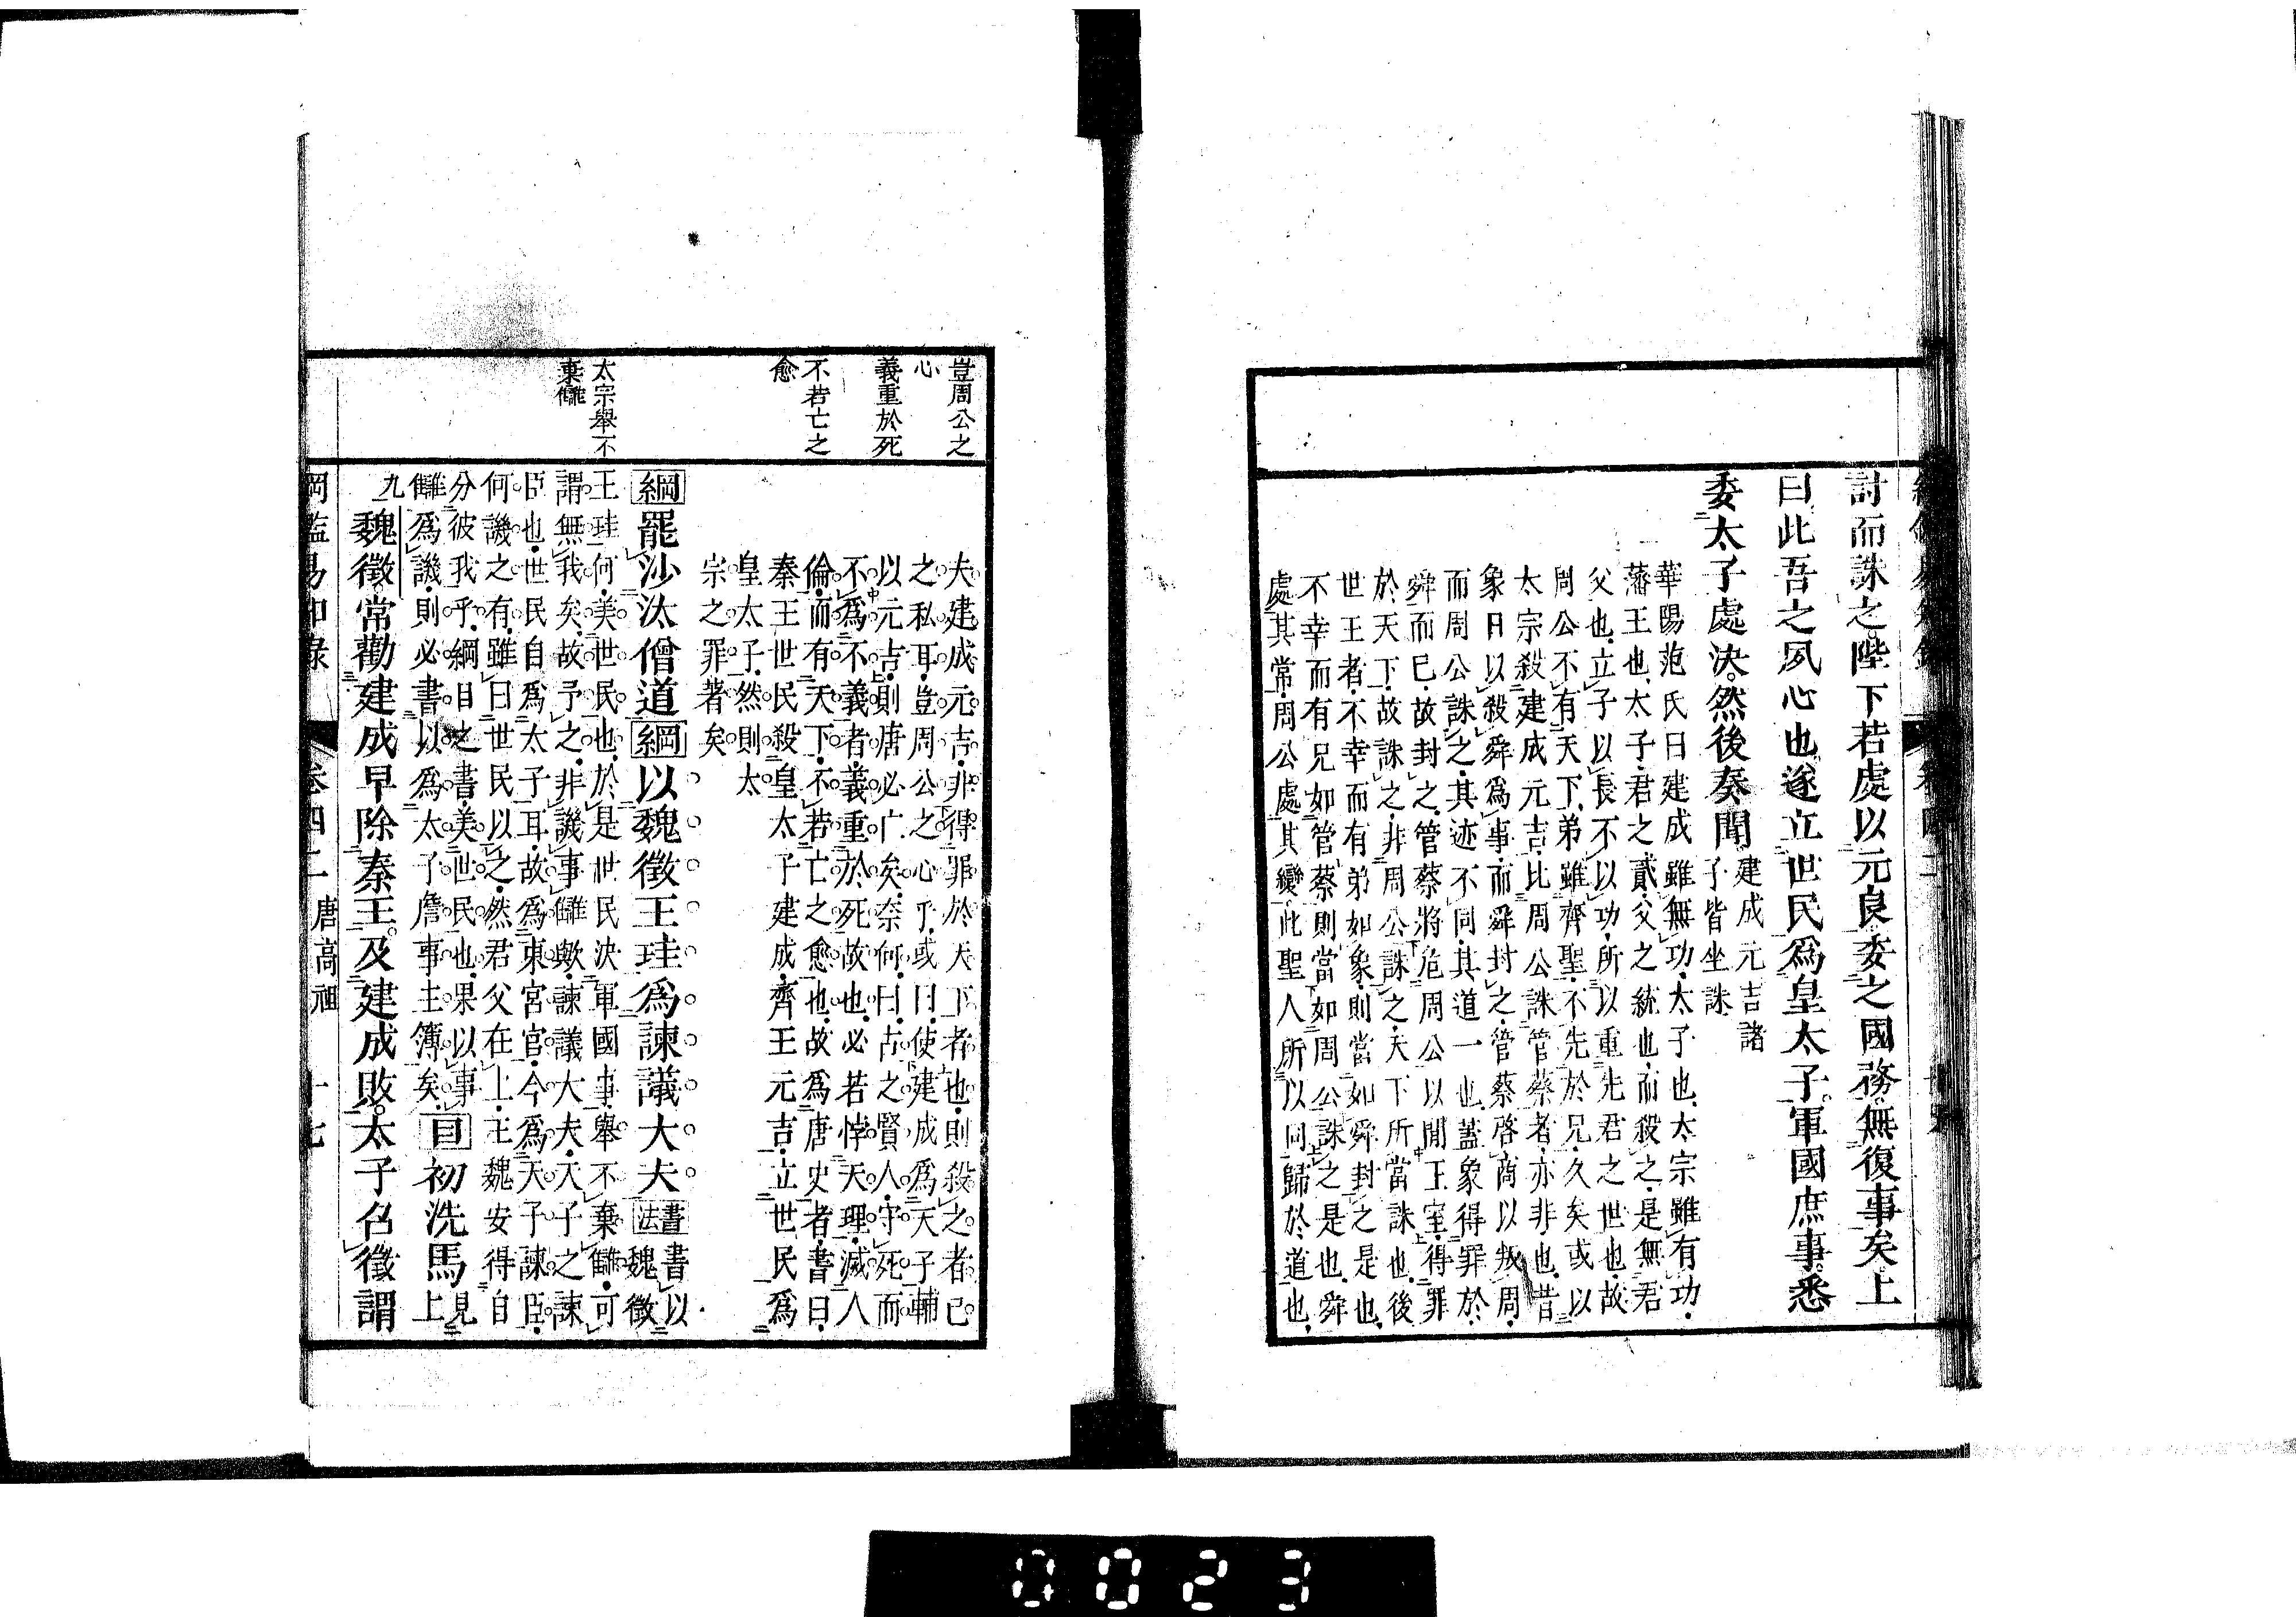 討而誅之陛下若處以元良委之國務無復事矣上
曰此吾之夙心也遂立世民爲皇太子軍國庶事悉
委太子處決然後奏聞
建成元吉諸
子皆坐誅
華陽范氏曰建成雖無功太子也太宗雖有功
藩王也太子君之貳父之統也而殺之是無君
父也立子以長不以功所以重先君之世也故
周公不有天下弟雖齊聖不先於兄久矣或以
太宗殺建成元吉比周公誅管蔡者亦非也昔
象日以殺舜爲事而舜封之管蔡啓商以叛周
而周公誅之其迹不同其道一也蓋象得罪於
舜而已故封之管蔡將危周公以閒王室得罪
於天下故誅之非周公誅之天下所當誅也後
世王者不幸而有弟如象則當如舜封之是也
不幸而有兄如管蔡則當如周公誅之是也舜
處其常周公處其變此聖人所以同歸於道也
豈周公之
心
義重於死
不若亡之
愈
太宗舉不
棄讎
夫建成元吉非得罪於天下者也則殺之者已
之私耳豈周公之心乎或曰使建成爲天子輔
以元吉則唐必亡矣奈何曰古之賢人守死而
不爲不義者義重於死故也必若悖天理滅人
倫而有天下不若亡之愈也故爲唐史者書曰
秦王世民殺皇太子建成齊王元吉立世民爲
皇太子然則太
宗之罪著矣
綱罷沙汰僧道綱以魏徵王珪爲諫議大夫
書法
書以
魏徵
王珪何美世民也於是世民決軍國事舉不棄讎可
謂無我矣故予之非譏事讎歟諫議大夫天子之諫
臣也世民自爲太子耳故爲東宮官今爲天子諫臣
何譏之有雖曰世民以之然君父在上王魏安得自
分彼我乎綱目之書美世民也果以事
讎爲譏則必書以爲太子詹事主簿矣
目初洗馬
見
上
九
魏徵常勸建成早除秦王及建成敗太子召徵謂
綱監易知錄
卷四十二
唐高祖
十七
0023